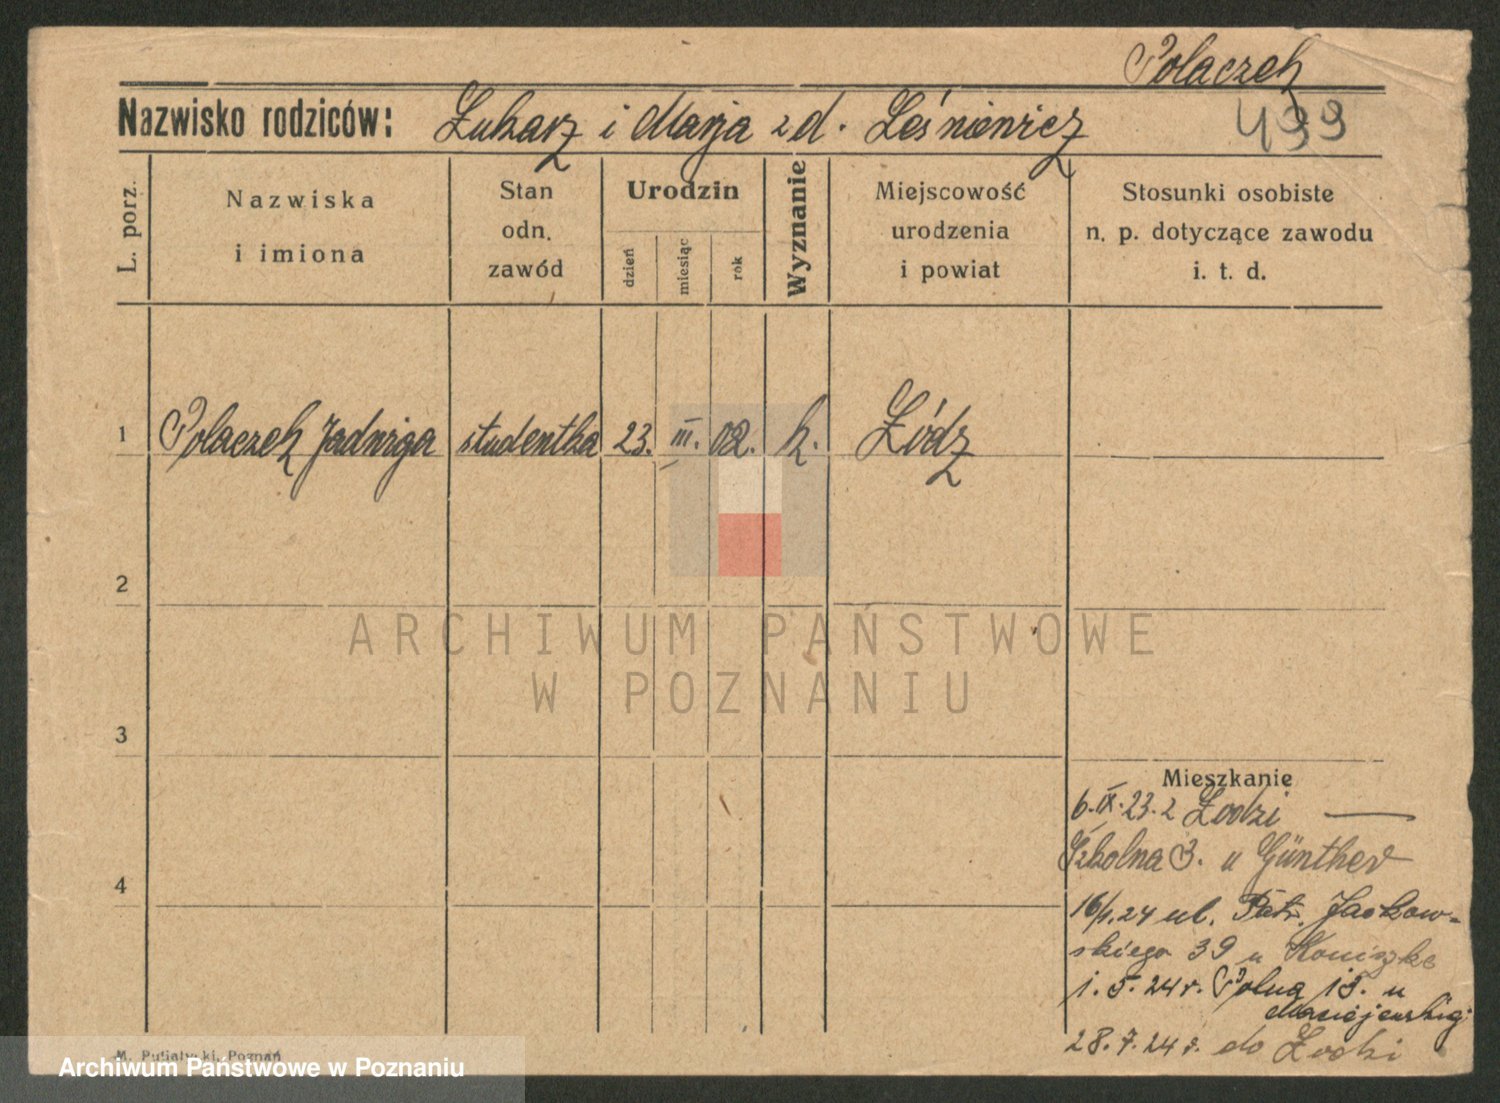 Polaczek
499
Nazwisko rodziców: Łukarz i Marja z d. Leśniewicz
L. porz.
Nazwiska i imiona
Stan odn. zawód
Urodzin
dzień
miesiąc
rok
Wyznanie
Miejscowość urodzenia i powiat
Stosunki osobiste n. p. dotyczące zawodu i. t. d.
1 Polaczek Jadwiga studentka 23. III. 02. k. Łódz
2
3
4
ARCHIWUM PAŃSTWOWE
W POZNANIU
Mieszkanie
6.IX.23. z Łodzi —
Szkolna 3. u Günther
16/1.24 ul. Patr. Jackow-
skiego 39 u
1.5.24 r. Polna 13. u
Maciejewskiej
28.7.24 r. do Łodzi
M. Putiatycki, Poznań
Archiwum Państwowe w Poznaniu